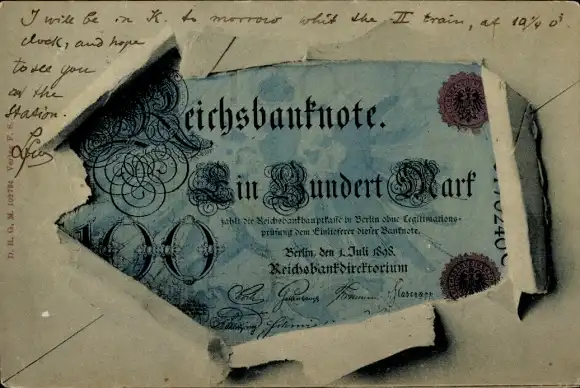 I will be in K. to morrow whit the II train, at 10 1/4 o'
clock, and hope
to see you
at the
Station.
Reichsbanknote.
Ein Hundert Mark
zahlt die Reichsbankhauptkasse in Berlin ohne Legitimations-
prüfung dem Einlieferer dieser Banknote.
Berlin, den 1. Juli 1898.
Reichsbankdirektorium
100
D. R. G. M. 102794